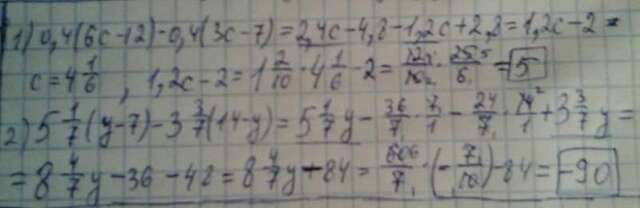 1) 0,4(6c-12)-0,4(3c-7)=2,4c-4,8-1,2c+2,8=1,2c-2=
c=4 1/6, 1,2c-2=1 2/10·4 1/6-2=12/10·25/6=5
2) 5 1/7(y-7)-3 3/7(14-y)=5 1/7y-36/7·7/1-24/7·14/1+3 3/7y=
=8 4/7y-36-48=8 4/7y-84=606/7·(-7/10)-84=-90